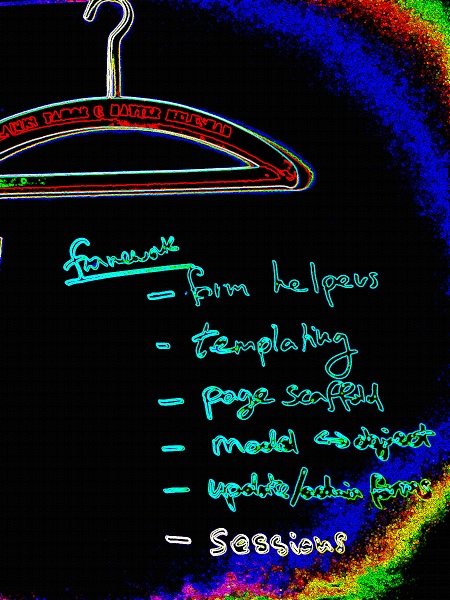 framework
- form helpers
- templating
- page scaffold
- model <-> object
- update/admin forms
- sessions